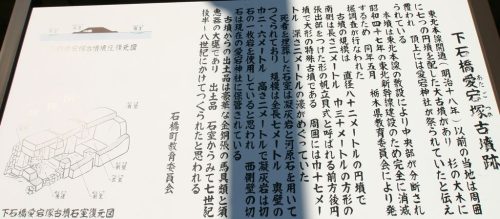 下石橋愛宕塚古墳跡
あたご
東北本線開通(明治十八年)以前の当地は 杉の大木に
覆われ 頂上には愛宕神社が祭られていたと伝え
本墳は東北本線の敷設により中央部が分断され
昭和四十九年の東北新幹線建設のため完全に消
するため 同年五月 栃木県教育委員会により発
掘調査が行なわれた
古墳の規模は 直径八十二メートルの円墳で
南側は長さ二メートル 巾三十メートルの方形の
張出部をつけた形の帆立貝式と呼ばれる前方後円
墳で大型の特殊古墳である 周囲には巾十七メート
ル 深さ二メートルの濠がめぐっていた
死者を埋葬した石室は凝灰岩と河原石を用いて
つくられており 規模は全長七メートル 奥壁の
巾二・六メートル 高さ二メートルで凝灰岩は切
石の一枚岩を使用していると思われ 西側壁の切
石は現在の愛宕神社に保管されている
古墳からの出土品は豪華な金銅張の馬具類と須
恵器の大甕であり 出土品 石室からみて七世紀
後半~八世紀にかけてつくられたと思われる
石橋町教育委員会
下石橋愛宕塚古墳墳丘復元図
下石橋愛宕塚古墳石室復元図